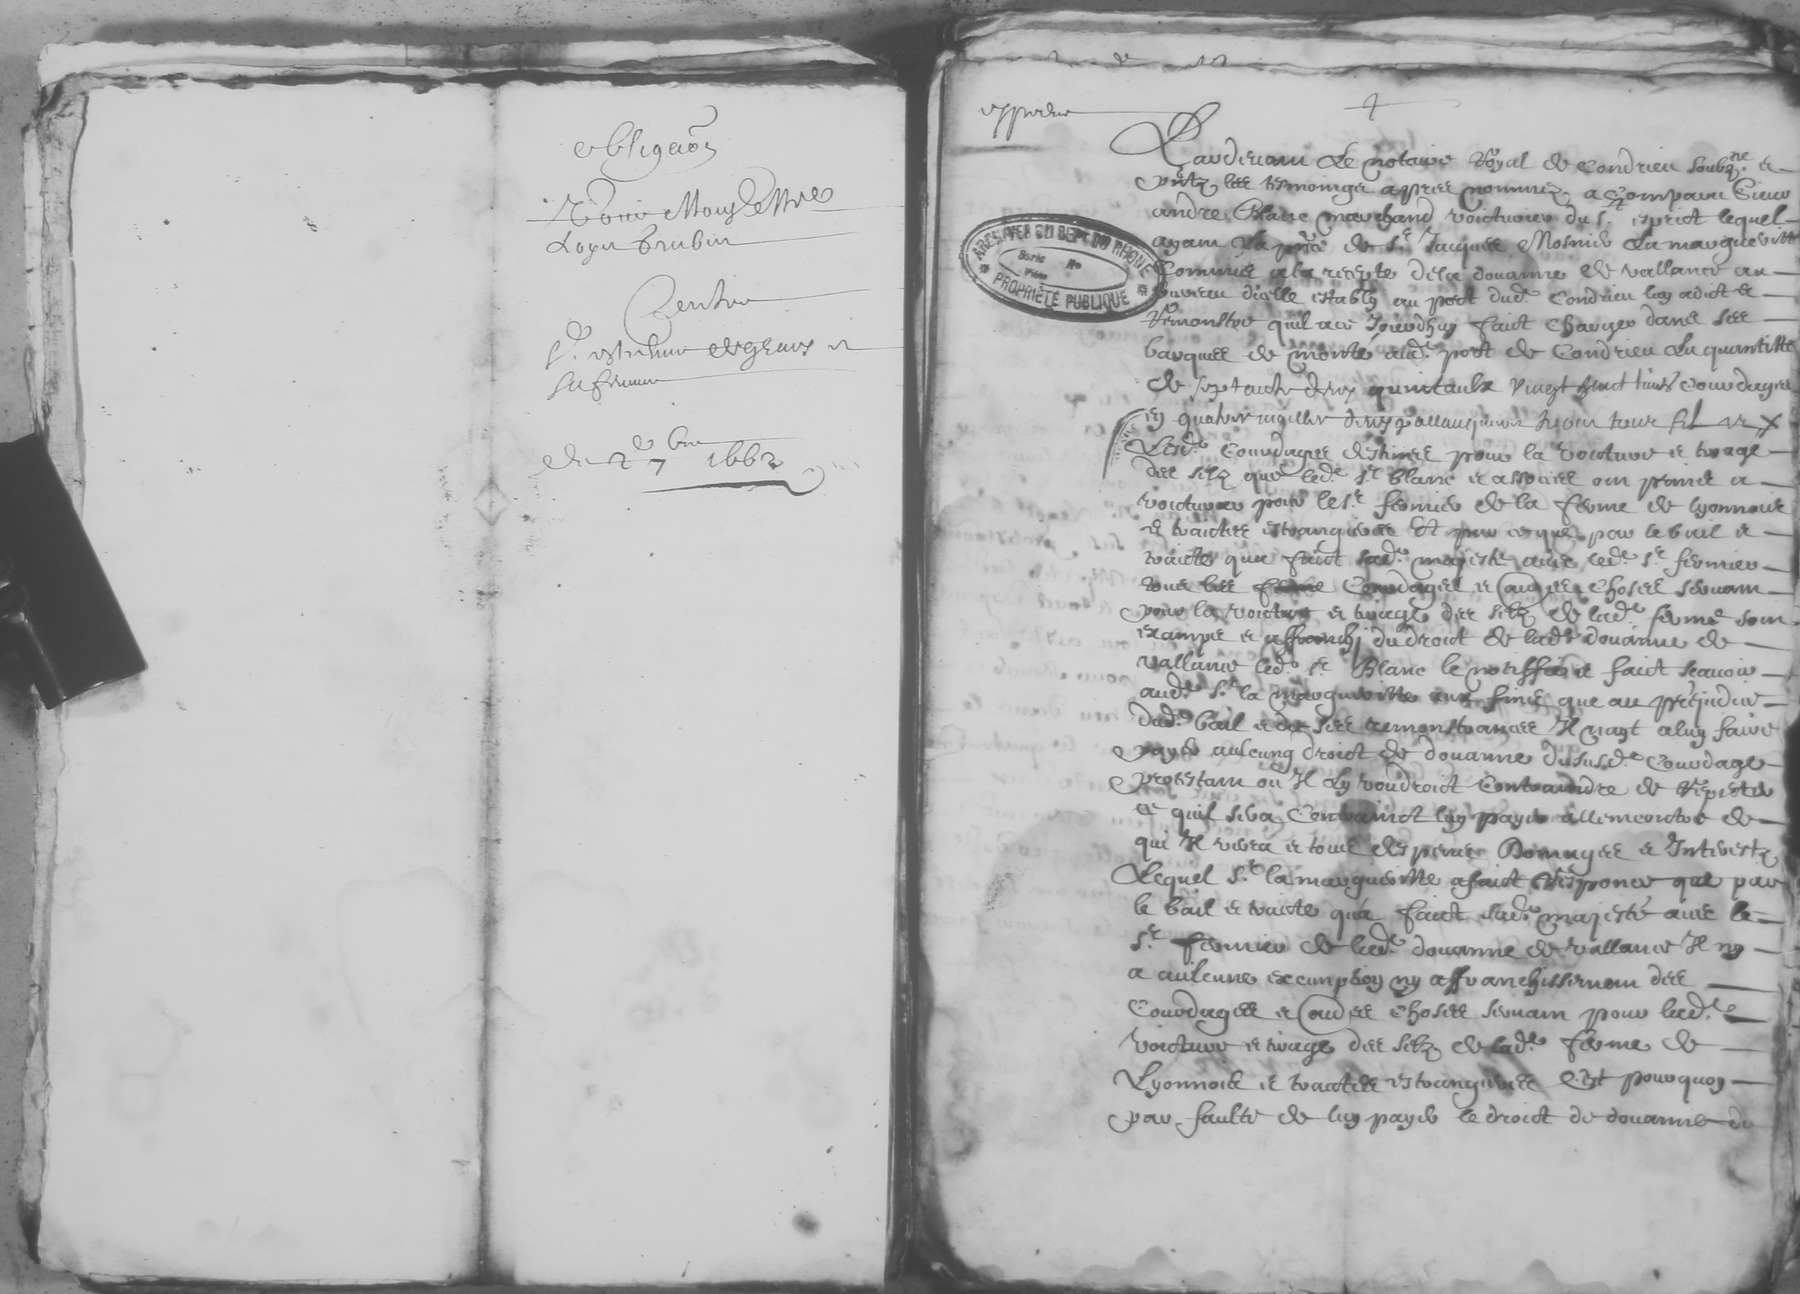 obligaõn
Pour Mons.
Loyse Brubin
Contre
Sr.
sa femme
du 2e 7 bre 1663
expediée
Pardevant Le notaire Royal de Condrieu soubzne et
prntz les tesmoings apres nommez a Comparu Sieur
andre Blanc marchand voicturier du St esprit lequel
ayant la pnce de Sr Jacques Mosnier La marguerite
Commis a la recepte de la douanne de vallance au
bureau dicelle estably au port dud. Condrieu luy a dict et
Remonstré quil a ce Jourdhuy faict charger dans ses
barques de monté aud. port de Condrieu La quantitté
de septante deux quintaulx vingt huict livres Courdages
en quatre
Lesd. Courdages destinés pour la voicture et tirage
des selz que led. Sr blanc et associés ont promis a
voicturer pour le Sr fermier de la ferme de lyonnois
et traictes estrangieres Et par ce que par le bail et
traicté qua faict sad. majesté avec led. Sr fermier
tous les Courdages et autres choses servant
pour la voicture et tirage des selz de lad. ferme sont
exampts et affranchi du droict de lad. douanne de
vallance led. Sr Blanc le notiffie et faict scavoir
aud. Sr la marguerite aux fins que au prejudice
dud. bail et de ses remonstrances Il nayt a luy faire
payer aulcung droict de douanne du susd. Courdage
protestant ou Il Ly voudroict Contraindre de Repeter
ce quil sera Contrainct luy payer allencontre de
qui Il verra et tous despens Domages et Interestz
Lequel Sr la marguerite a faict Responce que par
le bail et traicté qua faict sad. majesté avec le
Sr fermier de lad. douanne de vallance Il ny
a aulcune exemption ny affranchissement des
Courdages et autres choses servant pour lad.
voicture et tirage des selz de lad. ferme de
Lyonnois et traictes estrangieres Cest pourquoy
par faulte de luy payer le droict de douanne du
ARCHIVES DU DEPT DU RHÔNE
PROPRIÉTÉ PUBLIQUE